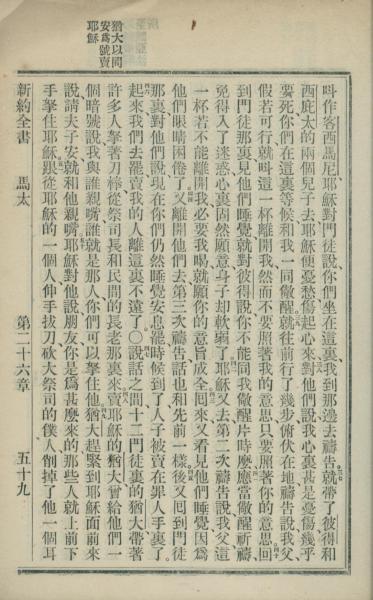 猶大以問
安爲號賣
耶穌
呌作客西馬尼耶穌對門徒說你們坐在這裏我到那邊去禱告就帶了彼得和
西庇太的兩個兒子去耶穌便憂愁傷起心來對他們說我心裏甚是憂傷幾乎
要死你們在這裏等候和我一同儆醒就往前行了幾步俯伏在地禱告說我父
假若可行就呌這一杯離開我然而不要照著我的意思只要照著你的意思回
到門徒那裏見他們睡覺就對彼得說你不能同我儆醒片時麼應當儆醒祈禱
免得入了迷惑心裏固然願意身子却軟弱了耶穌又去第二次禱告說我父這
一杯若不能離開我必要我喝就願你的意旨成全囘來又看見他們睡覺因爲
他們眼睛困倦了又離開他們去第三次禱告話也和先前一樣後又囘到門徒
那裏對他們說現在你們仍然睡覺安息罷時候到了人子被賣在罪人手裏了
起來我們去罷賣我的人離這裏不遠了〇說話之間十二門徒裏的猶大帶著
許多人拏著刀棒從祭司長和民間的長老那裏來賣耶穌的猶大曾給他們一
個暗號說我與誰親嘴誰就是那人你們可以拏住他猶大趕緊到耶穌面前來
說請夫子安就和他親嘴耶穌對他說朋友你是爲甚麼來的那些人就上前下
手拏住耶穌跟從耶穌的一個人伸手拔刀砍大祭司的僕人削掉了他一個耳
新約全書 馬太 第二十六章 五十九